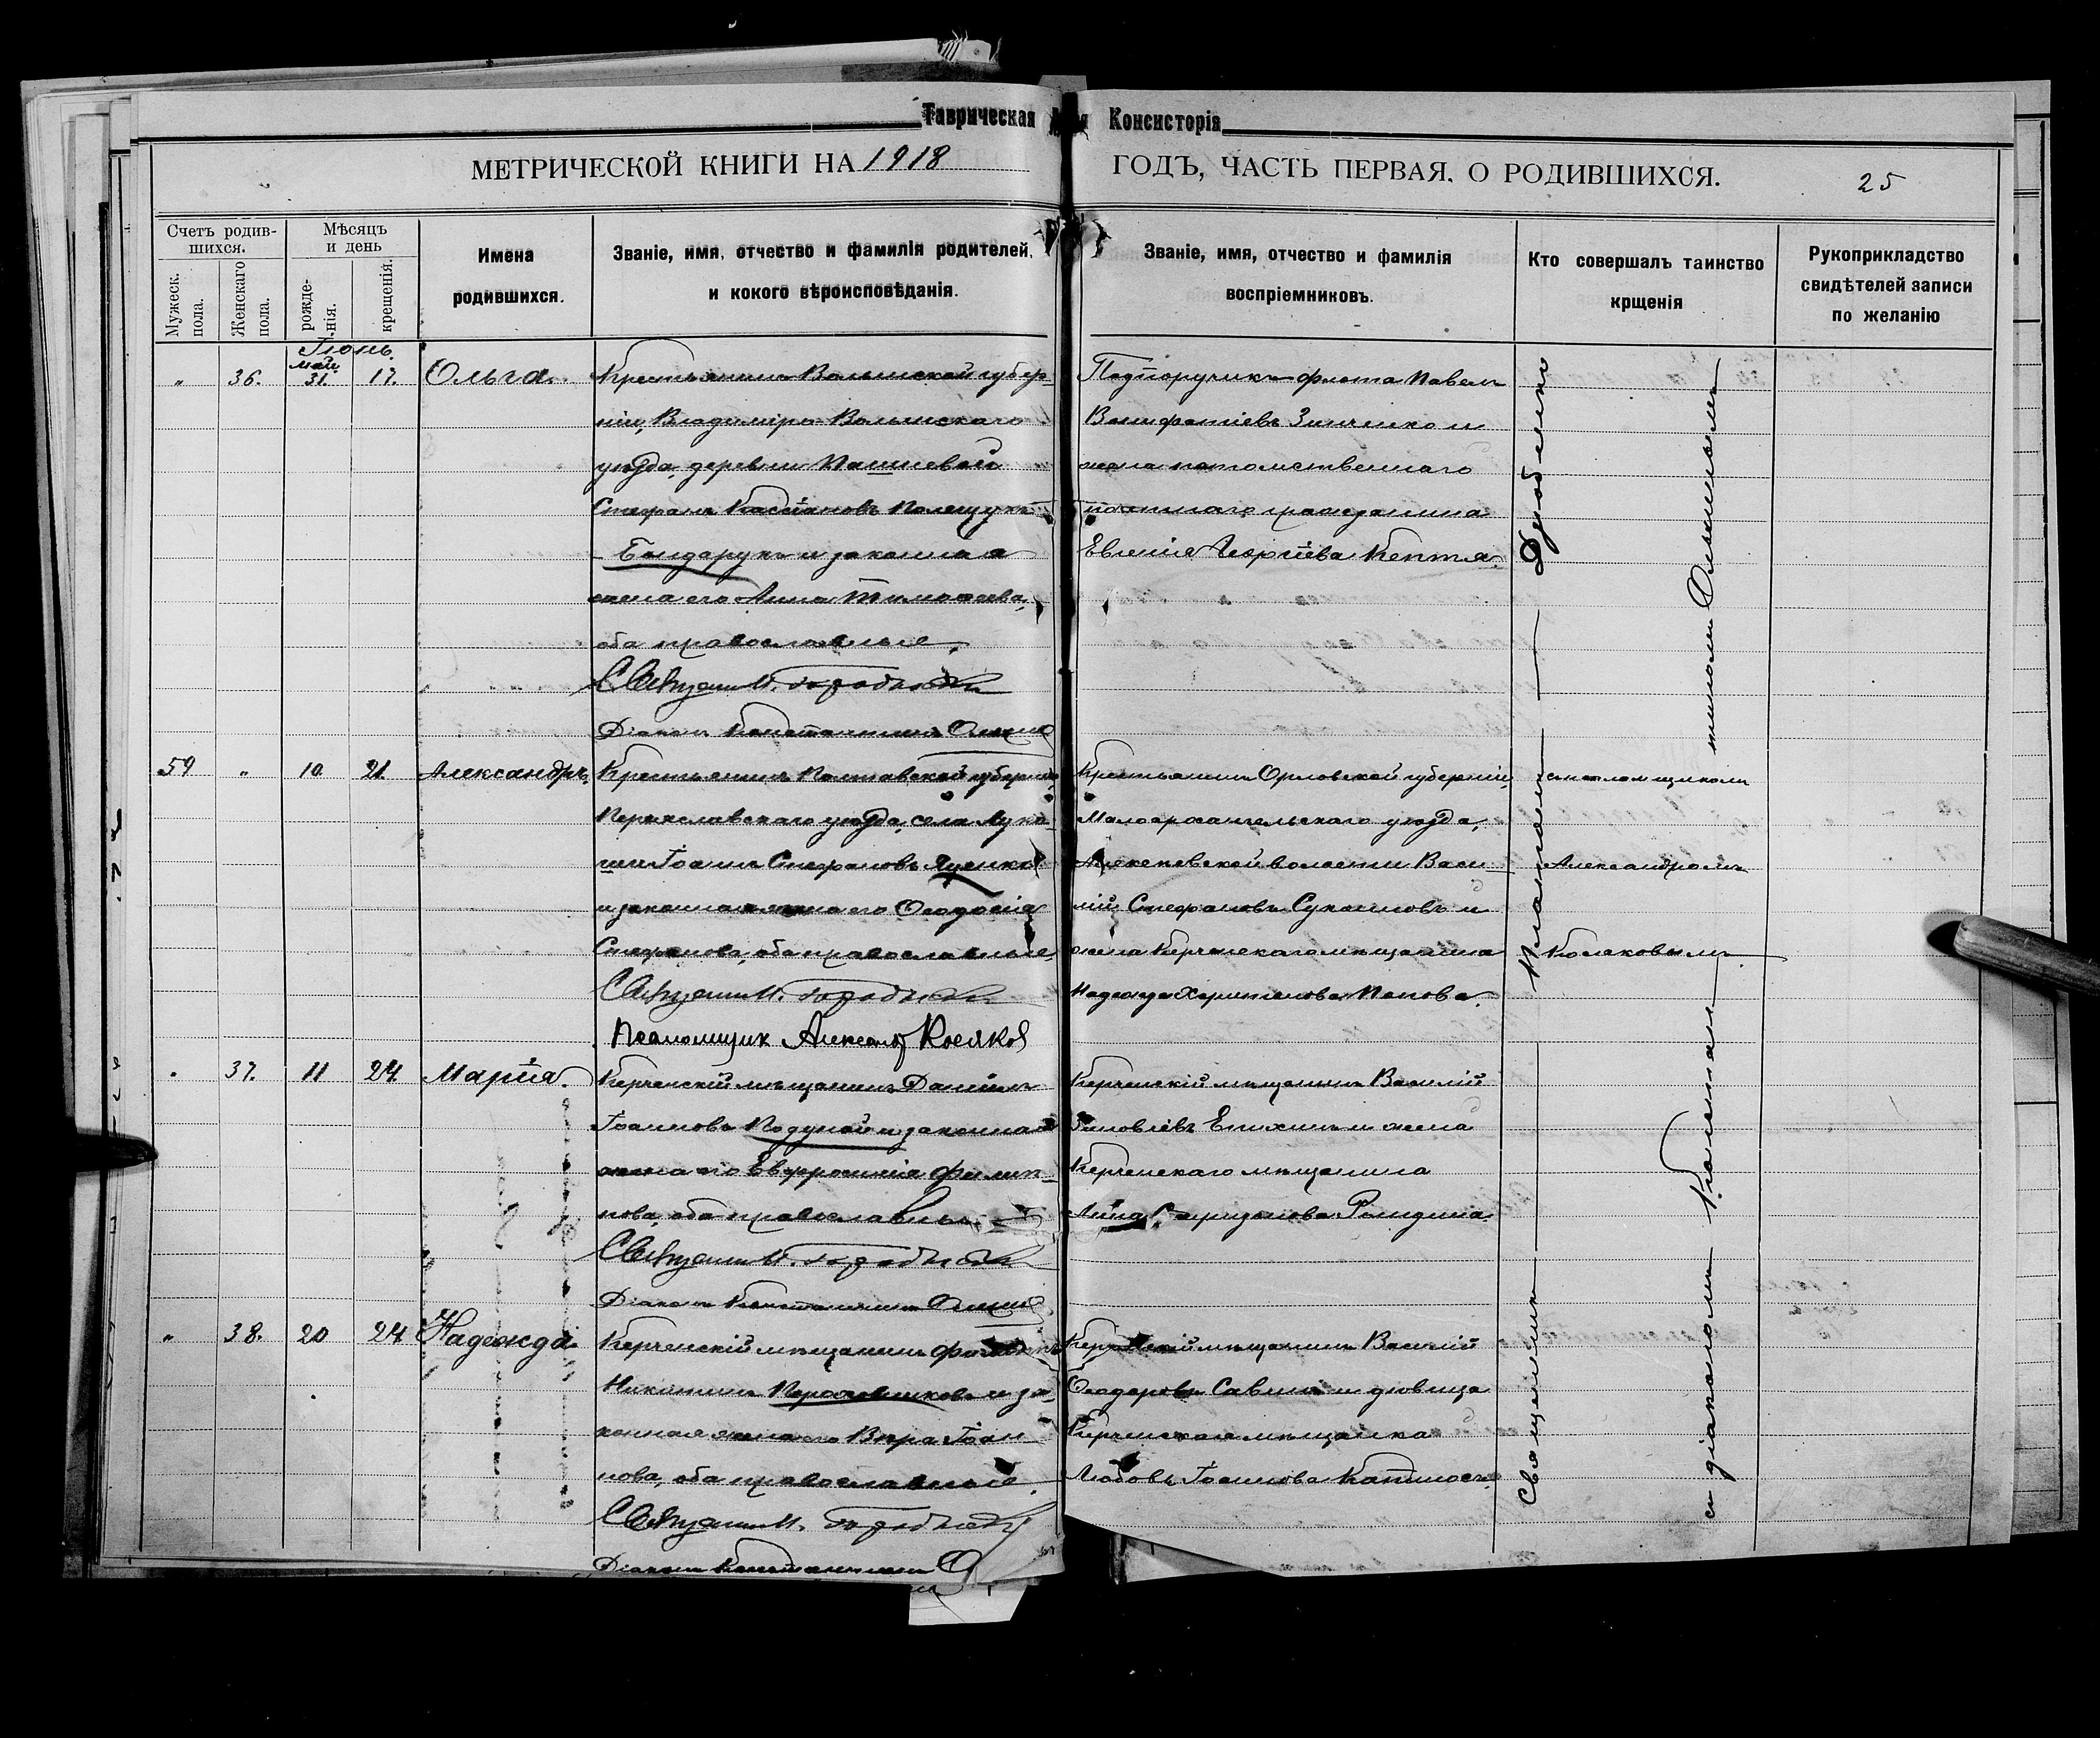 Таврическая Консисторія
МЕТРИЧЕСКОЙ КНИГИ НА 1918
ГОДЪ, ЧАСТЬ ПЕРВАЯ. О РОДИВШИХСЯ.
25
Счетъ родив-
шихся.
Мужеск.
пола.
Женскаго
пола.
Мѣсяцъ
и день
рожде-
нія.
крещенія.
Имена
родившихся.
Званіе, имя, отчество и фамилія родителей,
и кокого вѣроисповѣданія.
Званіе, имя, отчество и фамилія
воспріемниковъ.
Кто совершалъ таинство
крщенія
Рукоприкладство
свидѣтелей записи
по желанію
Іюнь.
" 36. май 31. 17. Ольга.
Крестьянинъ Волынской губер-
ніи, Владиміро-Волынскаго
уѣзда, деревни
Стефанъ Кассіановъ Полещукъ-
Бондарукъ и законная
жена его Анна Тимофеева,
оба православные.
Священ. И.
Діаконъ Константинъ
Подпоручикъ флота Павелъ
Вонифатіевъ Зинченко и
жена потомственнаго
почетнаго гражданина
Евгенія Георгіева Кентя.
59 " 10 21. Александръ.
Крестьянинъ Полтавской губерніи,
Переяславскаго уѣзда, села Лука-
ши Іоаннъ Стефановъ Яценко
и законная жена его Ѳеодосія
Стефанова, оба православные.
Священ. И.
Псаломщик Александр Косяков
Крестьянинъ Орловской губерніи,
Малоархангельскаго уѣзда,
Алексеевской волости Васи-
лій Стефановъ Сукоиновъ и
жена Керченскаго мѣщанина
Надежда Харитонова Попова.
съ псаломщикомъ
Александромъ
Косяковымъ
" 37. 11 24. Марія.
Керченскій мѣщанинъ Даніилъ
Іоанновъ Подуной и законная
жена его Евфросинія Филип-
пова, оба православные.
Священ. И.
Діаконъ Константинъ
Керченскій мѣщанинъ Василій
Зиновіевъ Епихинъ и жена
Керченскаго мѣщанина
Анна Спиридонова
" 38. 20 24. Надежда.
Керченскій мѣщанинъ Филиппъ
Никитинъ и за-
конная жена его Вѣра Іоан-
нова, оба православные.
Священ. И.
Діаконъ Константинъ
Керченскій мѣщанинъ Василій
Ѳеодоровъ Савинъ и дѣвица
Керченская мѣщанка
Любовь Іоаннова
Священникъ Платонъ
съ діакономъ